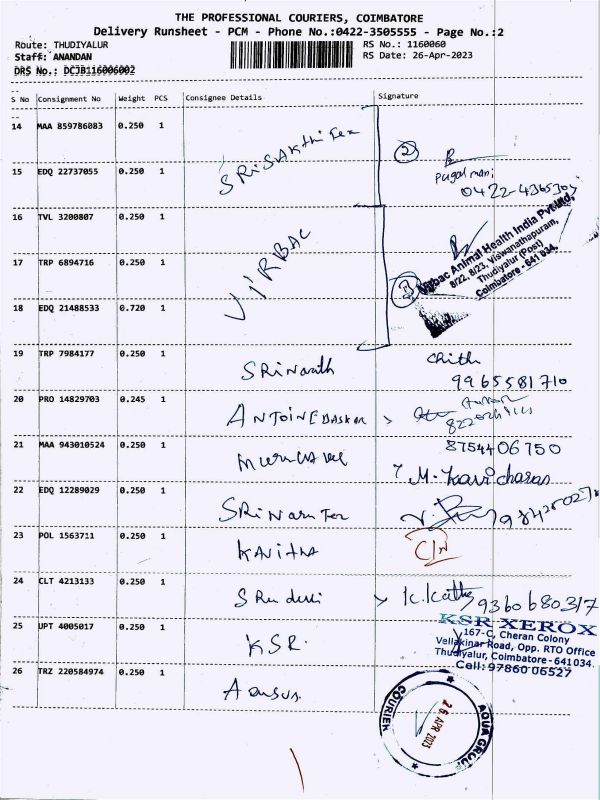 THE PROFESSIONAL COURIERS, COIMBATORE
Delivery Runsheet - PCM - Phone No.:0422-3505555 - Page No.:2
Route: THUDIYALUR RS No.: 1160060
Staff: ANANDAN RS Date: 26-Apr-2023
DRS No.: DCJB116006002
S No Consignment No Weight PCS Consignee Details Signature
14 MAA 859786083 0.250 1 SRISAKthi Tex 2
15 EDQ 22737055 0.250 1 Pugal mani
0422-4365305
16 TVL 3200807 0.250 1
17 TRP 6894716 0.250 1 VIRBAC 3
Virbac Animal Health India Pvt Ltd,
8/22, 8/23, Viswanathapuram,
Thudiyalur (Post)
Coimbatore - 641 034.
18 EDQ 21488533 0.720 1
19 TRP 7984177 0.250 1 SRinath
9965581710
20 PRO 14829703 0.245 1 ANTOINE BASKAR
21 MAA 943010524 0.250 1 8754406750
M. Kavicharas
22 EDQ 12289029 0.250 1
23 POL 1563711 0.250 1 KAVITHA C/N
24 CLT 4213133 0.250 1 9360680317
25 UPT 4005017 0.250 1 KSR.
KSR XEROX
167-C, Cheran Colony
Vellakinar Road, Opp. RTO Office
Thudiyalur, Coimbatore - 641034.
Cell: 97860 06527
26 TRZ 220584974 0.250 1
AQUA GROUP
26 APR 2023
COURIER